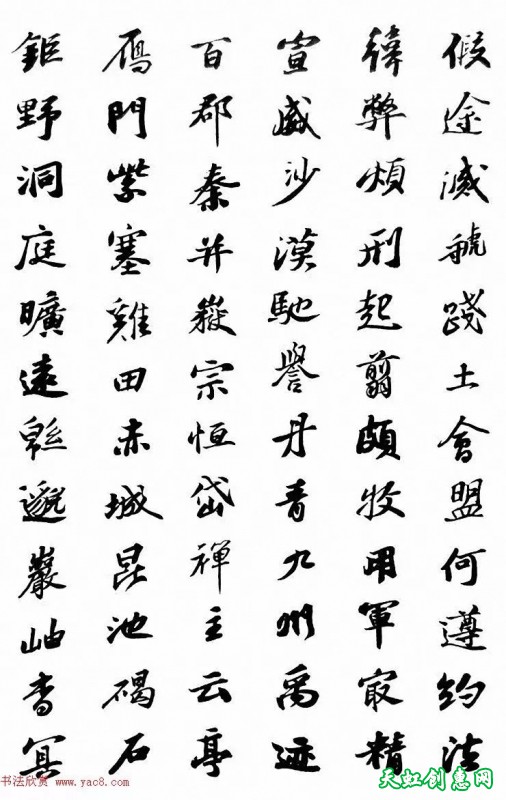 假途滅虢踐土會盟何遵約法
韓弊煩刑起翦頗牧用軍㝡精
宣威沙漠馳譽丹青九州禹迹
百郡秦并嶽宗恒岱禪主云亭
鴈門紫塞雞田赤城昆池碣石
鉅野洞庭曠遠緜邈巖岫杳冥
书法欣赏 www.yac8.com
天虹创惠网